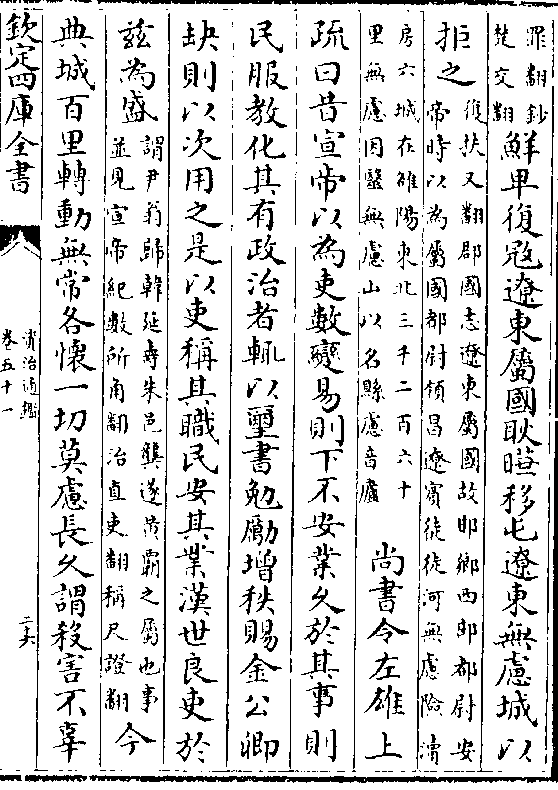 罪翻鈔
楚交翻
鮮卑復㓂遼東屬國耿曄移屯遼東無慮城以
拒之
復扶又翻郡國志遼東屬國故邯鄉西部都尉安
帝時以為屬國都尉領昌遼賓徒徒河無慮險瀆
房六城在雒陽東北三千二百六十
里無慮因醫無慮山以名縣慮音廬
尚書令左雄上
疏曰昔宣帝以為吏數變易則下不安業久於其事則
民服教化其有政治者輒以璽書勉勵增秩賜金公卿
缺則以次用之是以吏稱其職民安其業漢世良吏於
兹為盛
謂尹翁歸韓延壽朱邑龔遂黃霸之屬也事
並見宣帝紀數所角翻治直吏翻稱尺證翻
今
典城百里轉動無常各懷一切莫慮長久謂殺害不辜
欽定四庫全書
資治通鑑
卷五十一
二六